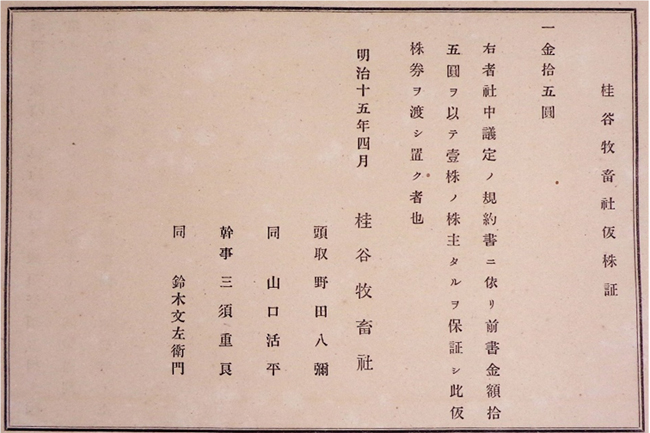 桂谷牧畜社仮株証
一金拾五圓
右者社中議定ノ規約書ニ依リ前書金額拾
五圓ヲ以テ壹株ノ株主タルヲ保証シ此仮
株券ヲ渡シ置ク者也
明治十五年四月　桂谷牧畜社
頭取 野田八彌
同 山口活平
幹事 三須重良
同 鈴木文左衛門